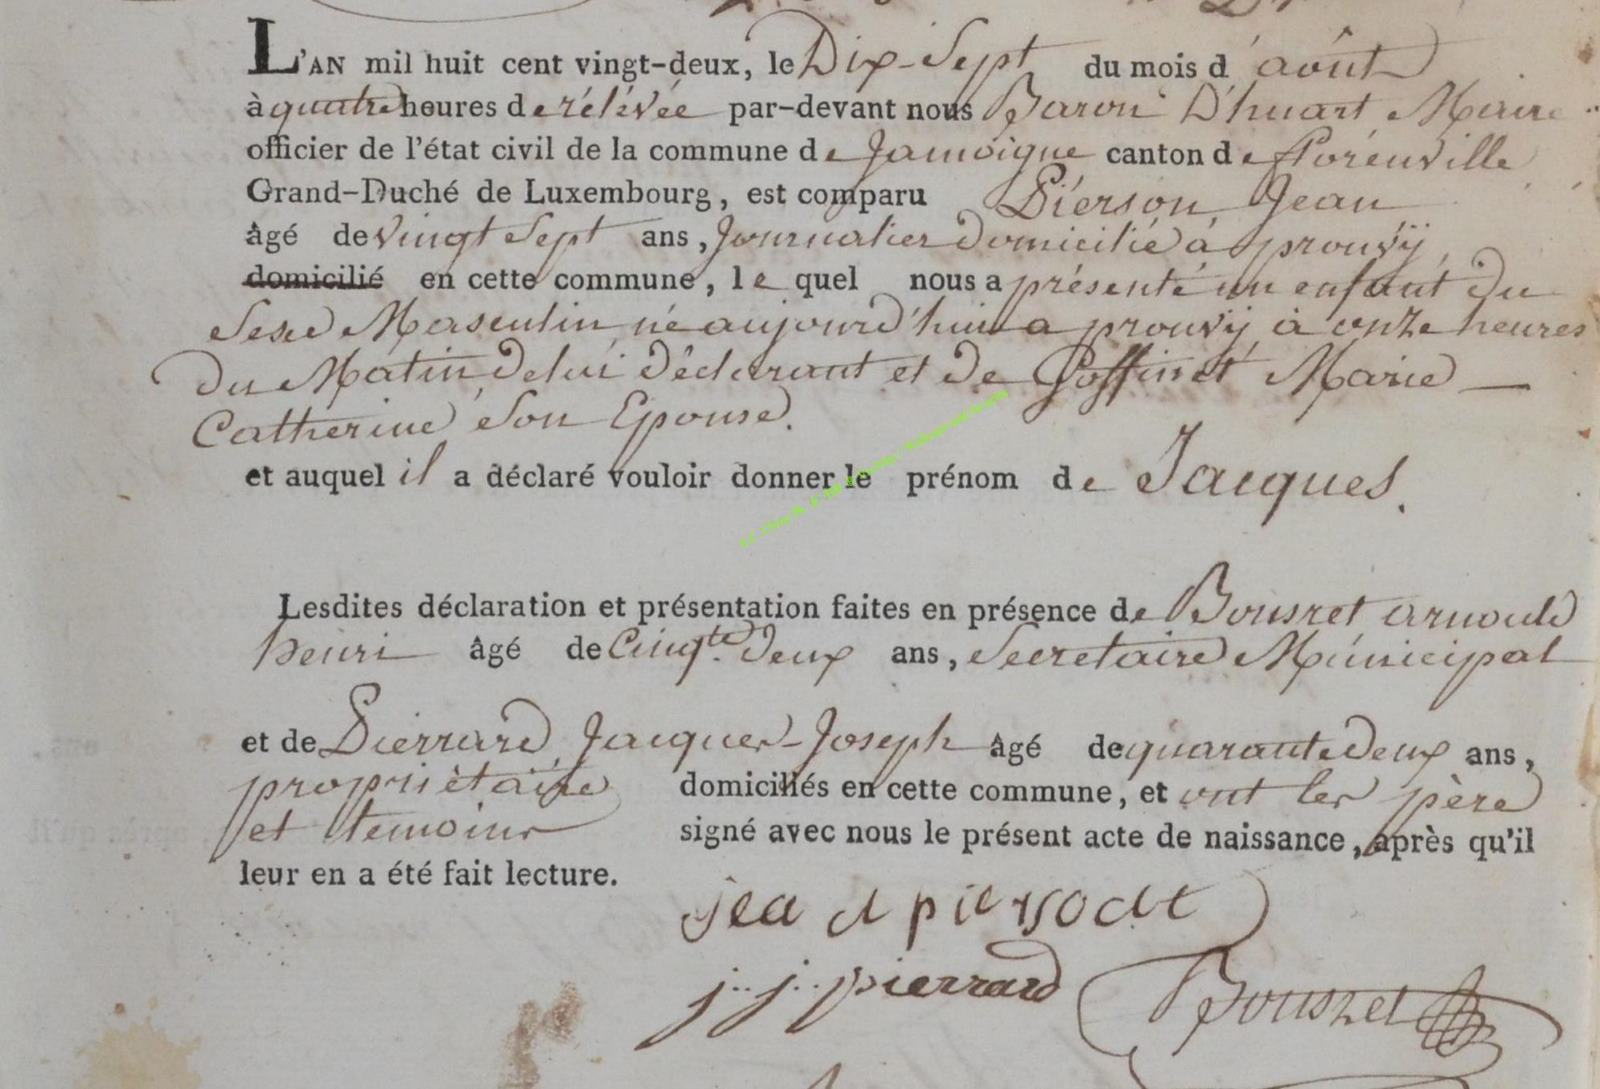 L'AN mil huit cent vingt-deux, le Dix-Sept du mois d'août
à quatre heures de rélévée par-devant nous Baron D'huart Maire
officier de l'état civil de la commune de Jamoigne canton de florenville
Grand-Duché de Luxembourg, est comparu Piérson Jean
âgé de vingt Sept ans, Journalier domicilié à prouvÿ
domicilié en cette commune, le quel nous a présenté un enfant du
Sexe Masculin, né aujourd'hui a prouvÿ, à onze heures
du Matin de lui déclarant et de Goffinet Marie —
Catherine, Son Epouse.
et auquel il a déclaré vouloir donner le prénom de Jacques.
Lesdites déclaration et présentation faites en présence de Bousret arnould
henri âgé de Cinqte. deux ans, Secretaire Municipal
et de Pierrard, Jacques-Joseph âgé de quarante deux ans,
propriètaire domiciliés en cette commune, et ont les père
et temoins signé avec nous le présent acte de naissance, après qu'il
leur en a été fait lecture.
j.. j.. pierrard Bousret